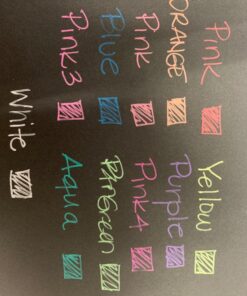 Pink Yellow
ORANGE Purple
Pink Pink4
Blue Green
Pink3 Aqua
White